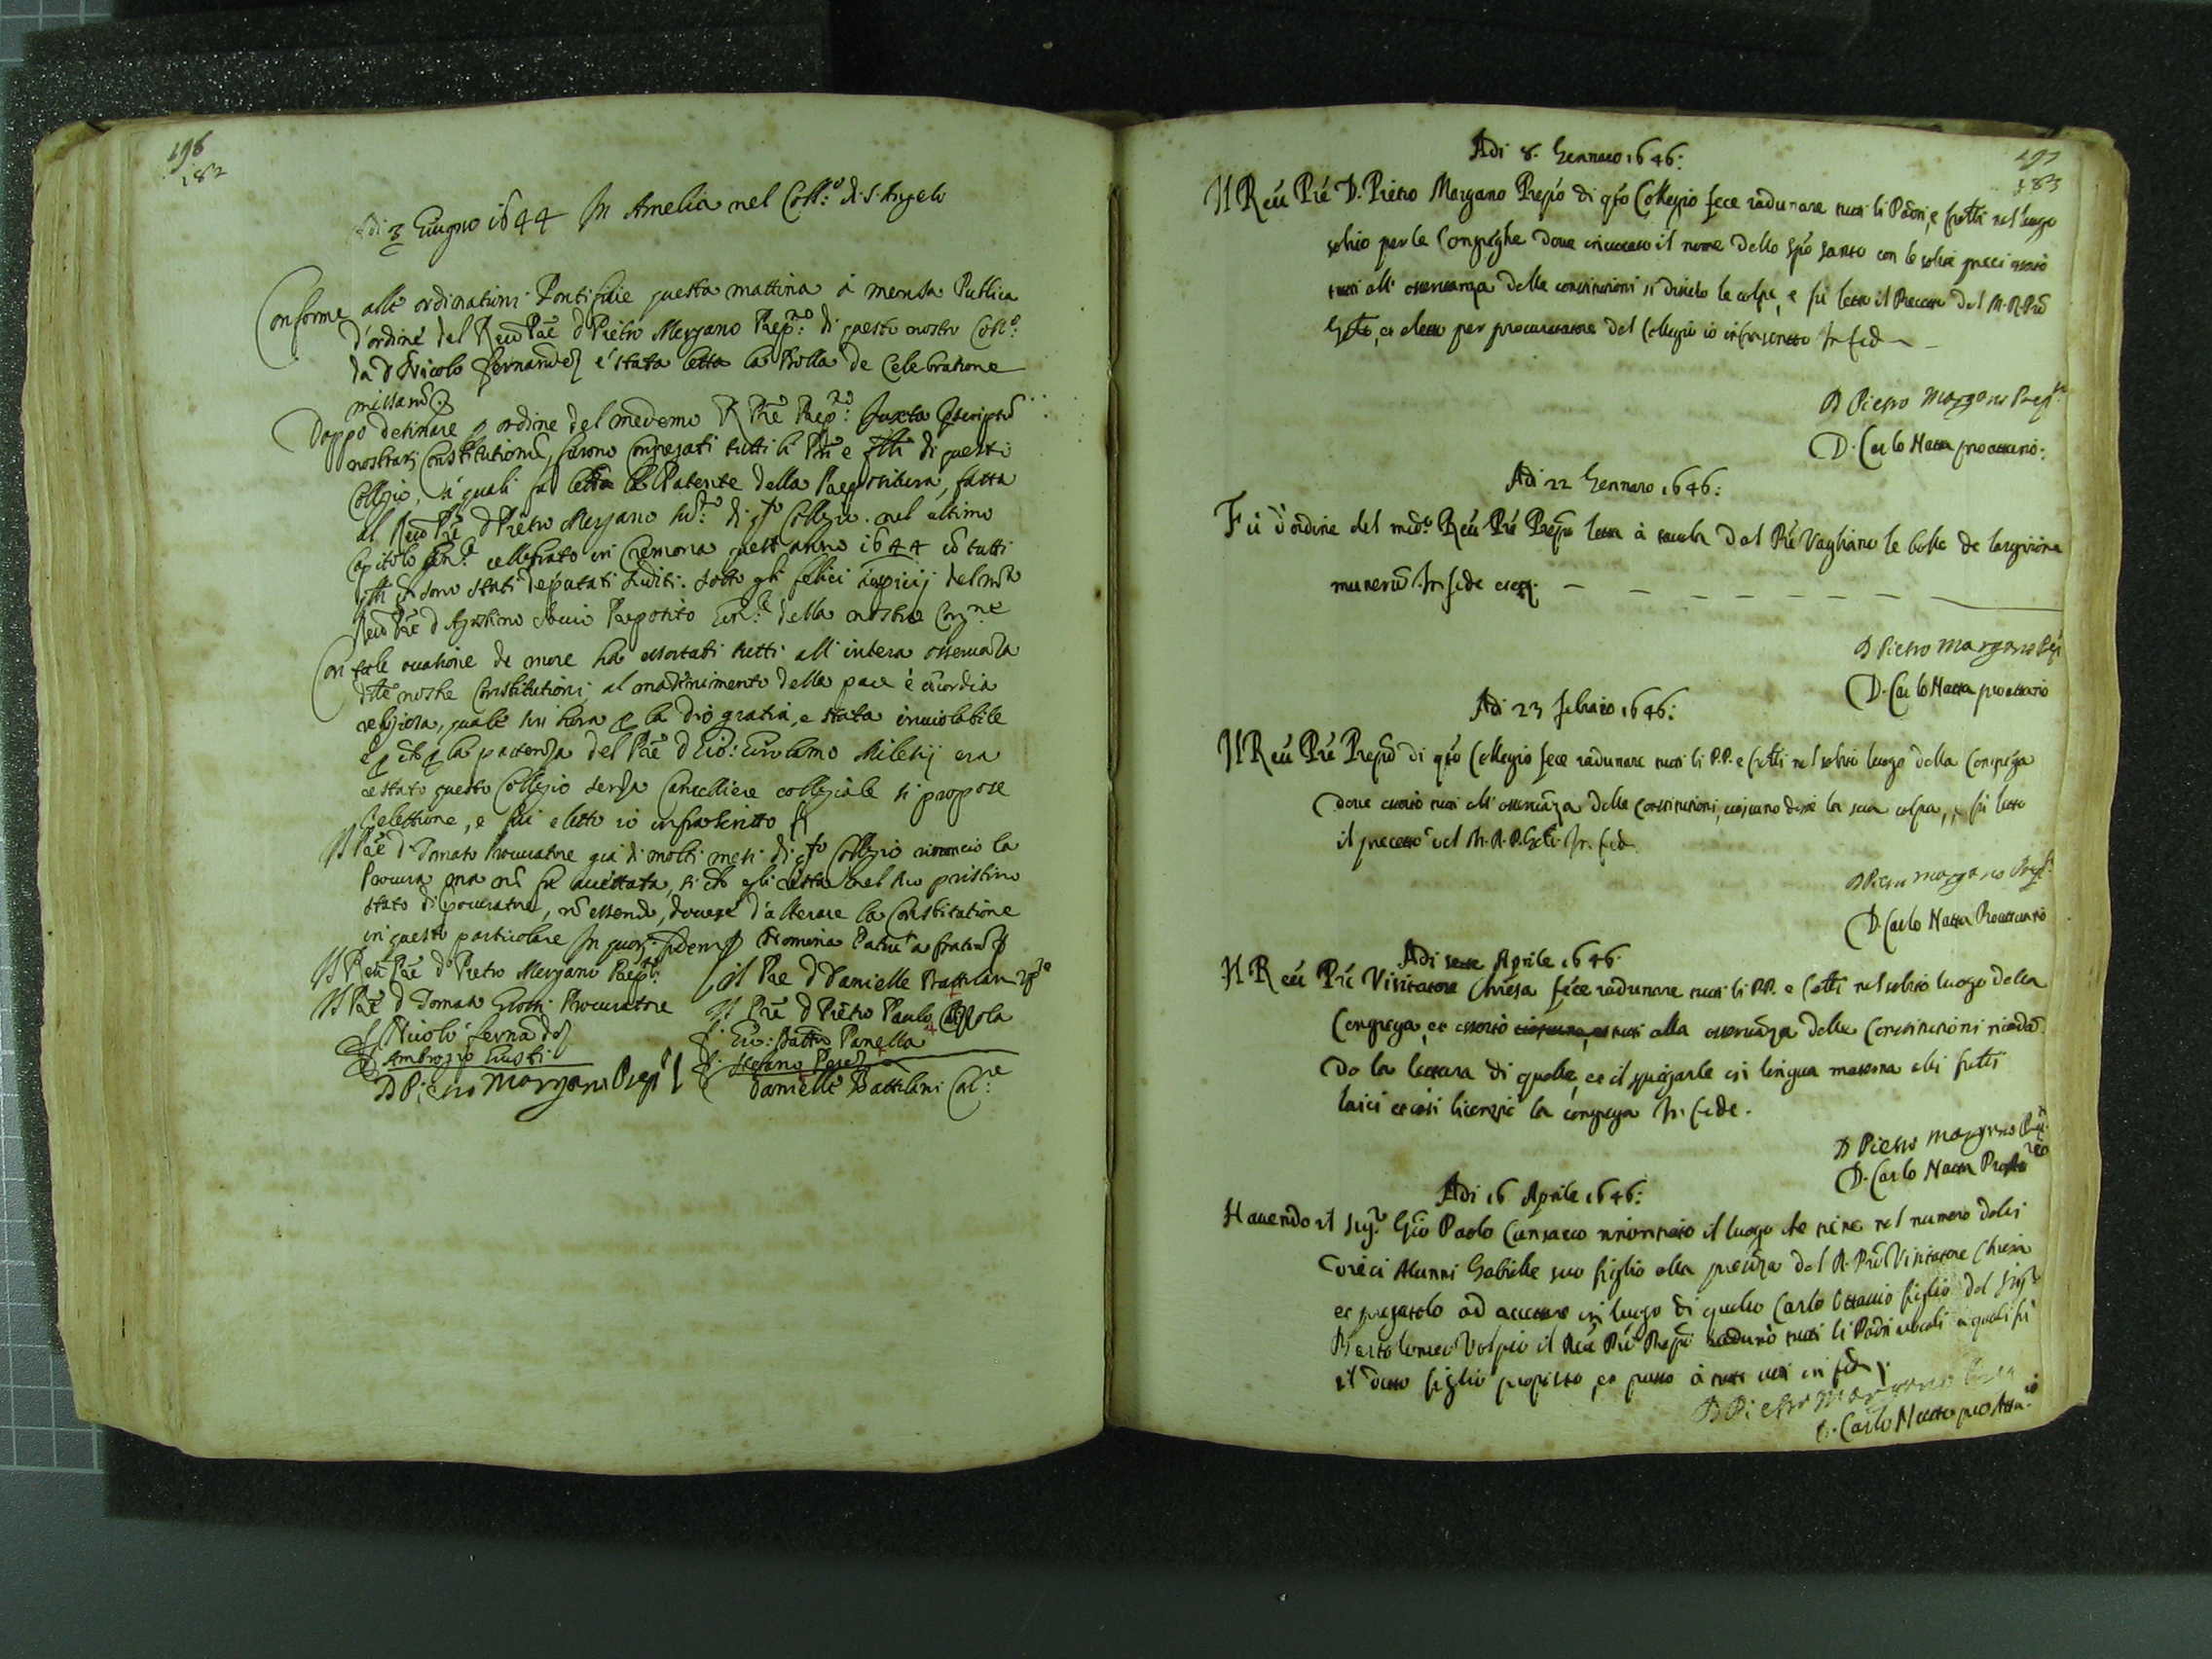 196
182
Adi 3 Giugno 1644 In Amelia nel Coll:o di S. Angelo
Conforme alle ordinationi Pontificie questa mattina à mensa Publica
d'ordine del Reu Pre d Pietro Morgano Prep:to di questo nostro Coll:o
da d Nicolo Fernandez è stata letta la Bolla de Celebratione
missarū
Doppo desinare p ordine del medemo R Pre Prep:to Juxta pscriptū
nostrarū Constitutionū, furono congregati tutti li Pri e frlli di questo
Collegio, à quali fu letta la Patente della Prepositura, fatta
al Reu Pre d Pietro Morgano sud:to di qto Collegio. nel ultimo
Capitolo Gen:le cellebrato in Cremona quest'anno 1644 cō tutti
qlli ch sono stati deputati suditi. sotto gli felici auspicij del
Reu Pre d Agostino Preposito Gen:le della nostra Con:ne
Con tale ocatione de more ha essortati tutti all'intera osseruāza
dlle nostre Constitutioni al mādenimento della pace è cōcordia
religiosa, quale sin hora p la Dio gratia, e stata inuiolabile
E p ch p la partenza del Pre d Gio: Girolamo Miletij era
restato questo Collegio senza Cancelliere collegiale si propose
l'elettione, e fui eletto io infrascritto
Il Pre d Tomaso Procuratore già di molti mesi di qto Collegio rinoncio la
Procura ma nō fu accettata, si ch egli resta nel suo pristino
stato di procuratore, nō essendo, douere d'alterare la Constitutione
in questo particolare In quor. fidem Nomina Patrū a fratrū
Il Reu Pre d Pietro Morgano Prep:to
Il Pre d Daniele Battilani
Il Pre d Tomaso Procuratore
Il Pre d Pietro Paulo
Nicolo Fernādez
Gio: Batta Panella
Ambrogio Giusti
Stefano Perez
D Pietro Morgano Prep:to
Daniele Battilani Can:re
197
183
Adi 8. Gennaro 1646:
Il Reu Pre D. Pietro Morgano Prepto di qto Collegio fece radunare tutti li Padri, e fratti nel luogo
solito per le Congreghe doue inuocato il nome dello Spo santo con le solite preci essortò
tutti all'osseruanza delle constitutioni si dissero le colpe, e fù letto il Precetto del M. R. Prō
Gnle, et eletto per procuratore del Collegio io infrascritto In fed
D Pietro Morgano Prep:to
D. Carlo Natta pro attuario:
Adi 22 Gennaro 1646:
Fù d'ordine del med:o Reu Pré Prepto letta à tauola Dal Pre Vagliano le bolle de largitione
munerū. In fede etc.
D Pietro Morgano Prep
D. Carlo Natta pro attuario
Adi 23 febraio 1646:
Il Reu Pre Prepto di qto Collegio fece radunare tutti li P.P. e fratti nel solito luogo della Congrega
doue essortò tutti all'osseruāza delle Constitutioni, ciascuno disse la sua colpa, e fù letto
il precetto del M. R. P. Gnle. In. fed.
D Pietro Morgano Prep:to
D. Carlo Natta Proattuario
Adi sette Aprile 1646.
Il Reu Pre Visitatore Chiesa fece radunare tutti li P.P. e fratti nel solito luogo della
Congrega, et essortò ciascuno, et tutti alla osseruāza delle Constitutioni ricordā=
do la lettura di quelle, et il spiegarle in lingua materna alli fratti
laici et così licenziò la congrega In fede.
D Pietro Morgano Prep:to
D. Carlo Natta
Adi 16 Aprile 1646:
Hauendo il Sig:r Gio Paolo Cansacco rinontiato il luogo che tiene nel numero delli
Tredici Alunni Gabrielle suo figlio alla presēza del R. Pre Visitatore Chiesa
et pregatolo ad accettare in luogo di quello Carlo Ottauio figlio del Sig:r
Bartolomeo Volpio il Reu Pre Prepto radunò tutti li Padri uocali à quali fù
il detto figlio proposto, et passò à tutti uoti in fede.
D Pietro Morgano
D. Carlo Natta pro Attu:io